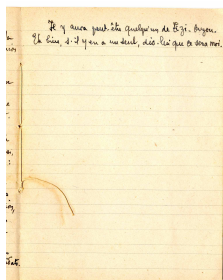 Il y aura peut-être quelqu'un de
Eh bien, s'il y en a un seul, dis-lui que ce sera moi.